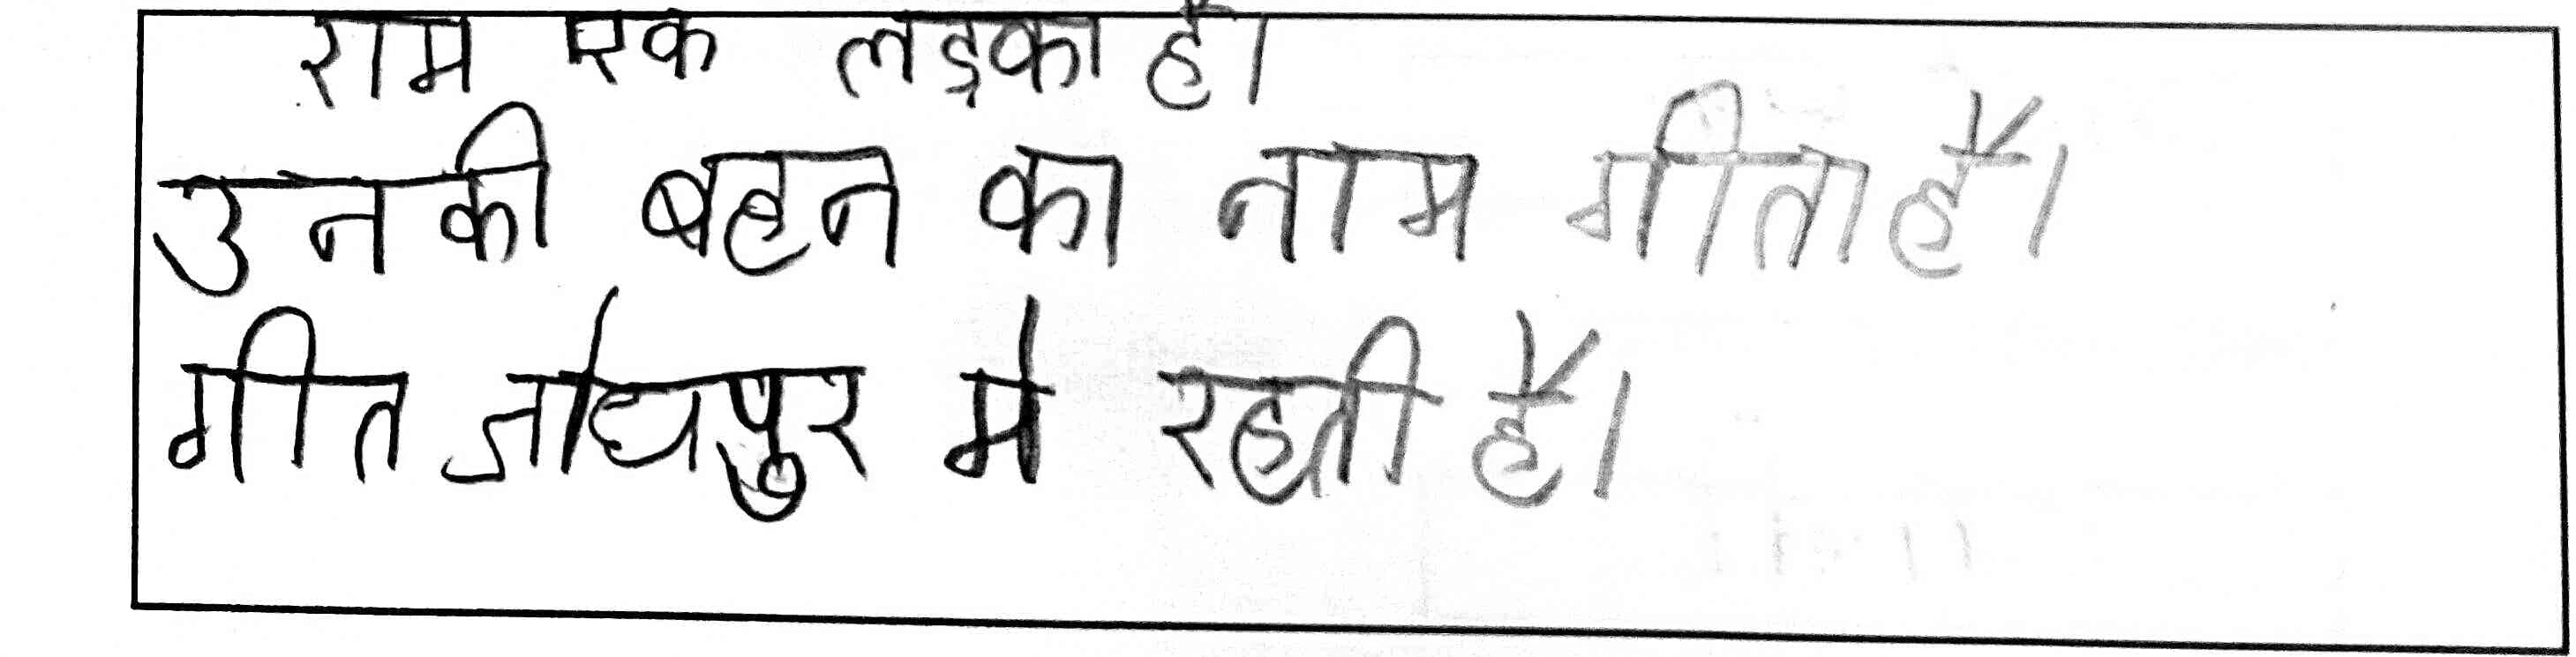 राम एक लड़का है।
उनकी बहन का नाम गीता है।
गीत जोधपुर मे रहती है।